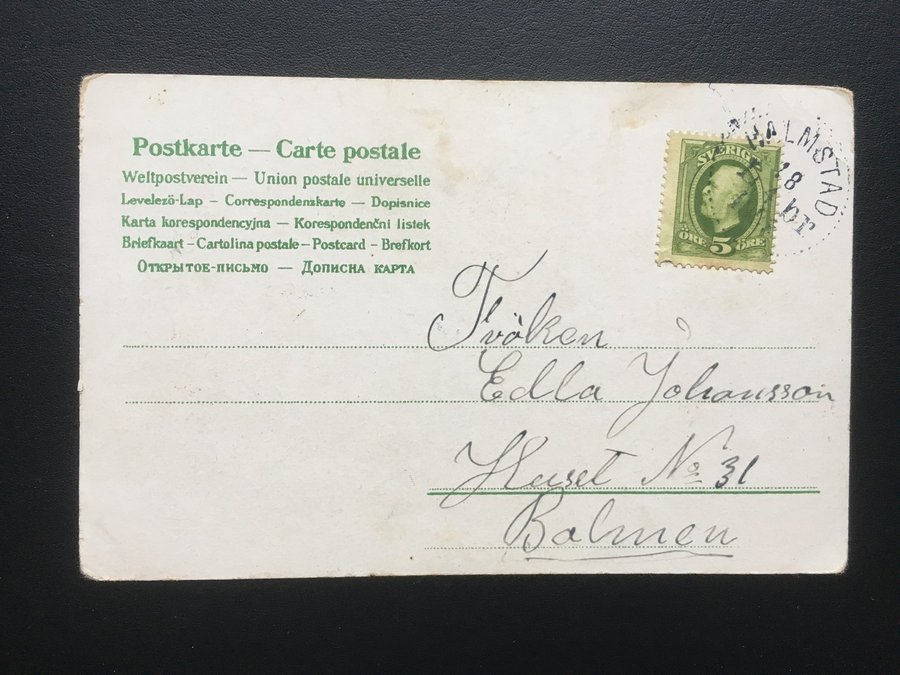 Postkarte — Carte postale
Weltpostverein — Union postale universelle
Levelező-Lap — Correspondenzkarte — Dopisnice
Karta korespondencyjna — Korespondenční listek
Briefkaart – Cartolina postale – Postcard – Brefkort
Открытое-письмо — Дописна карта
SVERIGE
ÖRE 5 ÖRE
HALMSTAD
18
Fröken
Edla Johansson
Huset No 31
Bolmen